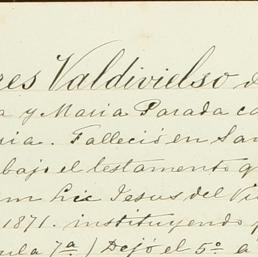 res Valdivielso d
a y Maria Parada ca
ia. Falleció en San
bajo el testamento q
m Lic Jesus del Vi
1871. instituyendo
ula 7ª) Dejó el 5º á